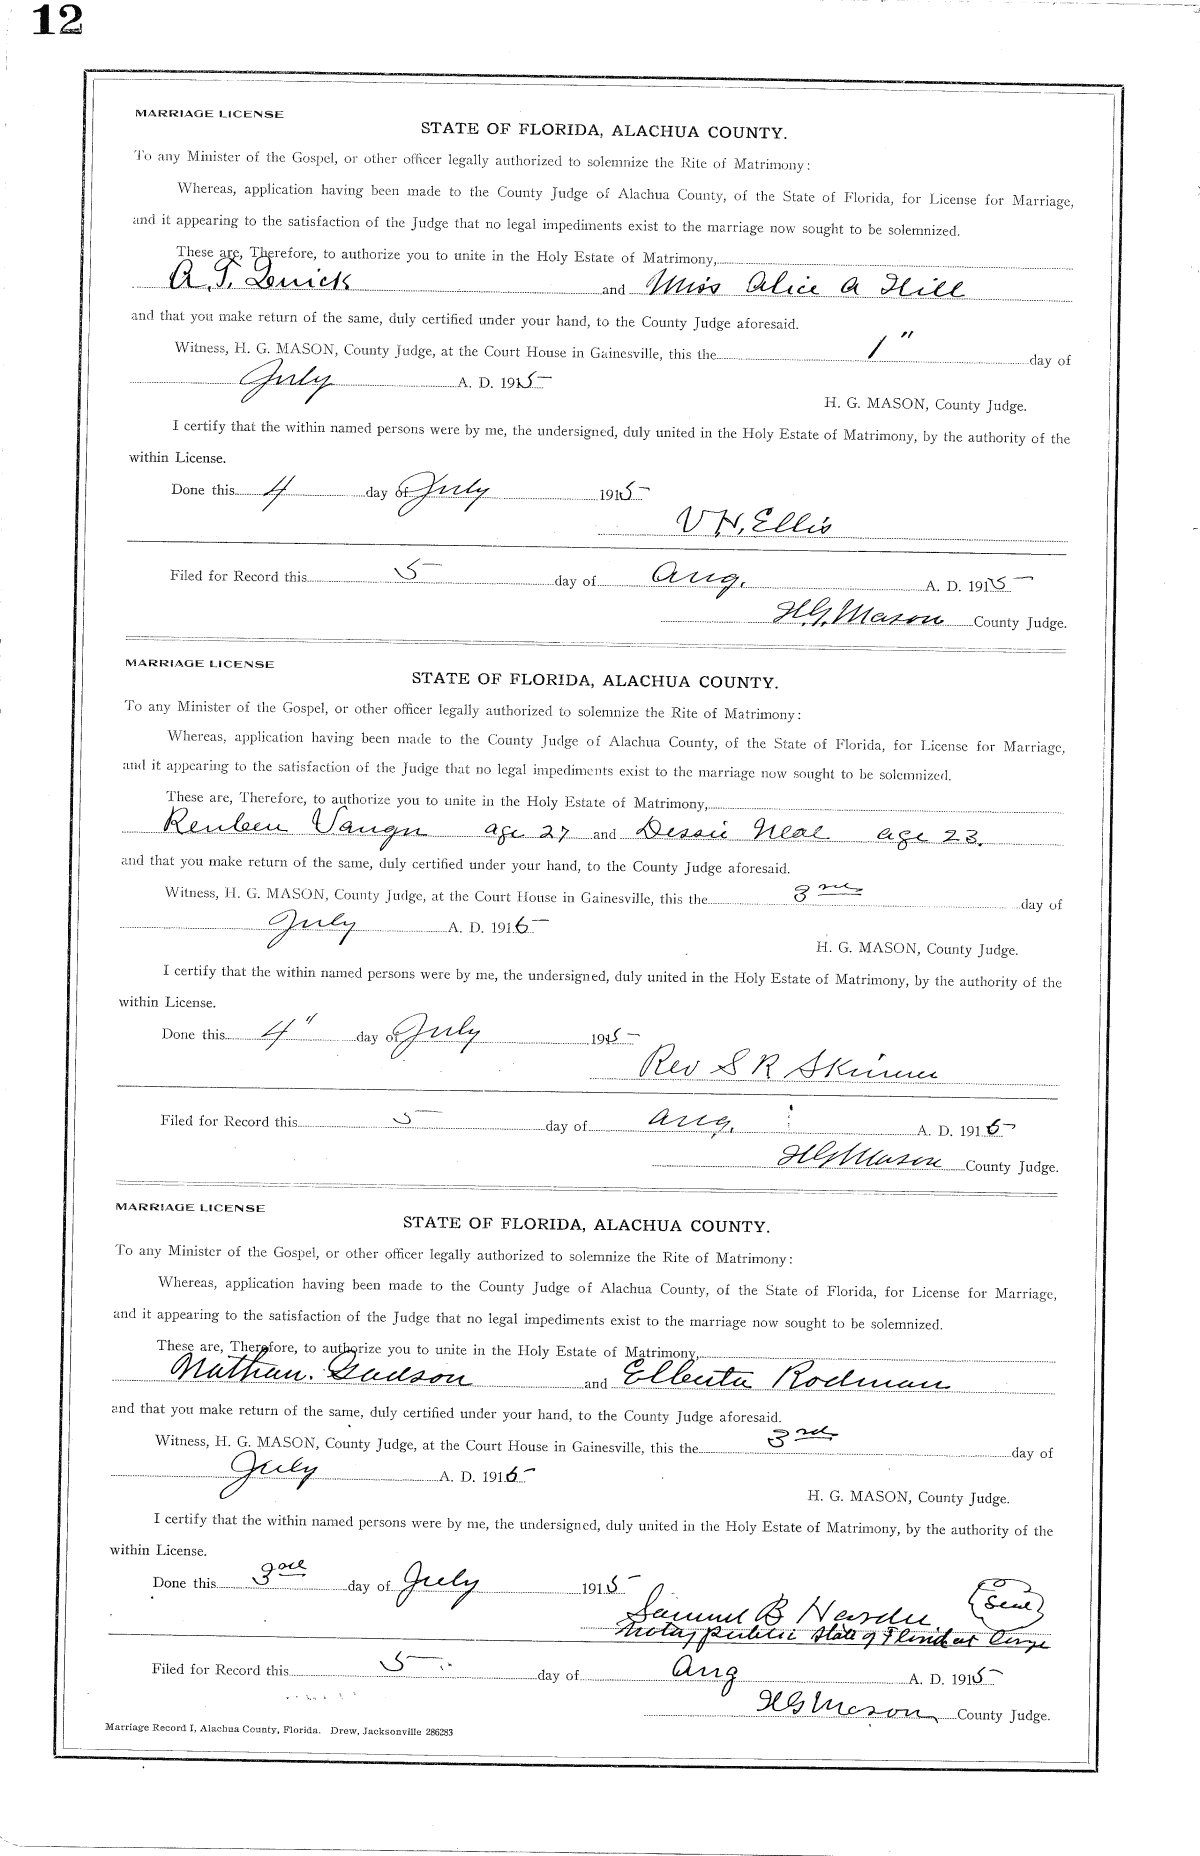 12
MARRIAGE LICENSE
STATE OF FLORIDA, ALACHUA COUNTY.
To any Minister of the Gospel, or other officer legally authorized to solemnize the Rite of Matrimony:
Whereas, application having been made to the County Judge of Alachua County, of the State of Florida, for License for Marriage,
and it appearing to the satisfaction of the Judge that no legal impediments exist to the marriage now sought to be solemnized.
These are, Therefore, to authorize you to unite in the Holy Estate of Matrimony,
A. T. and Miss Alice A Hill
and that you make return of the same, duly certified under your hand, to the County Judge aforesaid.
Witness, H. G. MASON, County Judge, at the Court House in Gainesville, this the 1" day of
July A. D. 1915
H. G. MASON, County Judge.
I certify that the within named persons were by me, the undersigned, duly united in the Holy Estate of Matrimony, by the authority of the
within License.
Done this 4 day of July 1915
V. H. Ellis
Filed for Record this 5 day of Aug. A. D. 1915
H. G. Mason County Judge.
MARRIAGE LICENSE
STATE OF FLORIDA, ALACHUA COUNTY.
To any Minister of the Gospel, or other officer legally authorized to solemnize the Rite of Matrimony:
Whereas, application having been made to the County Judge of Alachua County, of the State of Florida, for License for Marriage,
and it appearing to the satisfaction of the Judge that no legal impediments exist to the marriage now sought to be solemnized.
These are, Therefore, to authorize you to unite in the Holy Estate of Matrimony,
Reuben Vaugn age 27 and Dessie Neal age 23.
and that you make return of the same, duly certified under your hand, to the County Judge aforesaid.
Witness, H. G. MASON, County Judge, at the Court House in Gainesville, this the 3rd day of
July A. D. 1915
H. G. MASON, County Judge.
I certify that the within named persons were by me, the undersigned, duly united in the Holy Estate of Matrimony, by the authority of the
within License.
Done this 4" day of July 1915
Rev S R Skinner
Filed for Record this 5 day of Aug. A. D. 1915
H G Mason County Judge.
MARRIAGE LICENSE
STATE OF FLORIDA, ALACHUA COUNTY.
To any Minister of the Gospel, or other officer legally authorized to solemnize the Rite of Matrimony:
Whereas, application having been made to the County Judge of Alachua County, of the State of Florida, for License for Marriage,
and it appearing to the satisfaction of the Judge that no legal impediments exist to the marriage now sought to be solemnized.
These are, Therefore, to authorize you to unite in the Holy Estate of Matrimony,
Nathan. Gadson and Elberta Rodman
and that you make return of the same, duly certified under your hand, to the County Judge aforesaid.
Witness, H. G. MASON, County Judge, at the Court House in Gainesville, this the 3rd day of
July A. D. 1915
H. G. MASON, County Judge.
I certify that the within named persons were by me, the undersigned, duly united in the Holy Estate of Matrimony, by the authority of the
within License.
Done this 3rd day of July 1915
Samuel B (Seal)
Notary public State of Florida at Large
Filed for Record this 5 day of Aug A. D. 1915
H G Mason County Judge.
Marriage Record I, Alachua County, Florida. Drew, Jacksonville 286283